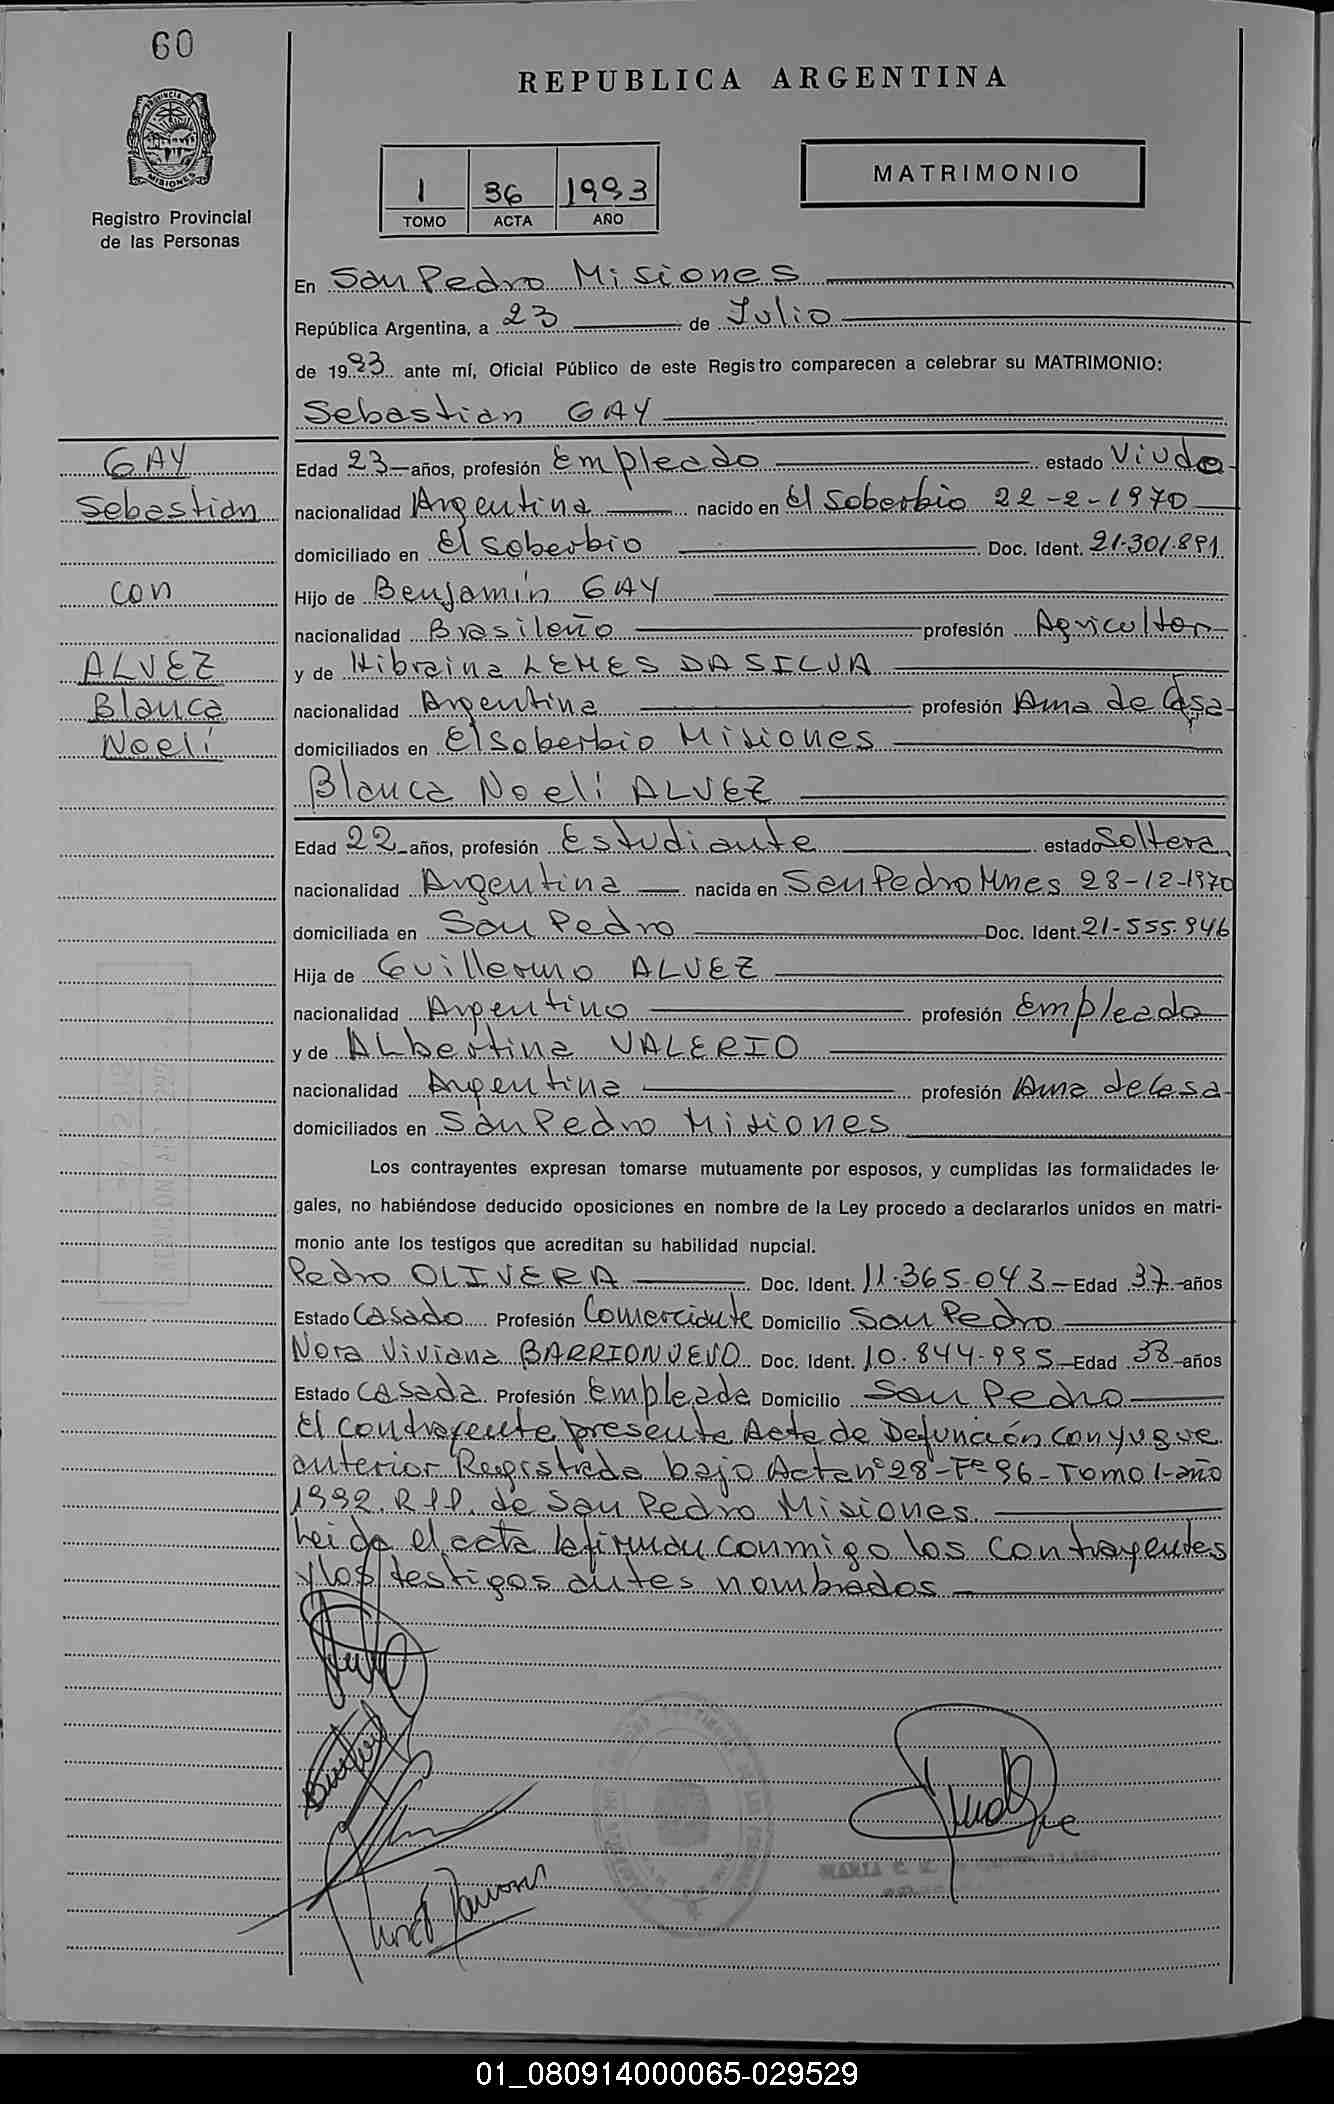 60
REPUBLICA ARGENTINA
PROVINCIA DE
MISIONES
Registro Provincial
de las Personas
1 36 1993
TOMO ACTA AÑO
MATRIMONIO
En San Pedro Misiones
República Argentina, a 23 de Julio
de 1993 ante mí, Oficial Público de este Registro comparecen a celebrar su MATRIMONIO:
Sebastian GAY
GAY
Sebastian
con
ALVEZ
Blanca
Noelí
Edad 23 años, profesión Empleado estado Viudo
nacionalidad Argentina nacido en El Soberbio 22-2-1970
domiciliado en El Soberbio Doc. Ident. 21.301.891
Hijo de Benjamín GAY
nacionalidad Brasileño profesión Agricultor
y de Hibraina LEMES DA SILVA
nacionalidad Argentina profesión Ama de Casa
domiciliados en El Soberbio Misiones
Blanca Noelí ALVEZ
Edad 22 años, profesión Estudiante estado Soltera
nacionalidad Argentina nacida en San Pedro Mnes 28-12-1970
domiciliada en San Pedro Doc. Ident. 21-555.946
Hija de Guillermo ALVEZ
nacionalidad Argentino profesión Empleado
y de ALbertina VALERIO
nacionalidad Argentina profesión Ama de Casa
domiciliados en San Pedro Misiones
Los contrayentes expresan tomarse mutuamente por esposos, y cumplidas las formalidades le-
gales, no habiéndose deducido oposiciones en nombre de la Ley procedo a declararlos unidos en matri-
monio ante los testigos que acreditan su habilidad nupcial.
Pedro OLIVERA Doc. Ident. 11.365.043 Edad 37 años
Estado Casado Profesión Comerciante Domicilio San Pedro
Nora Viviana BARRIONUEVO Doc. Ident. 10.844.995 Edad 38 años
Estado Casada Profesión Empleada Domicilio San Pedro
El contrayente presente Acta de Defunción conyugue
anterior Registrada bajo Acta nº 28-Fº 96-Tomo 1-año
1992. R.P.P. de San Pedro Misiones.
Leida el acta la firman conmigo los contrayentes
y los testigos antes nombrados
01_080914000065-029529